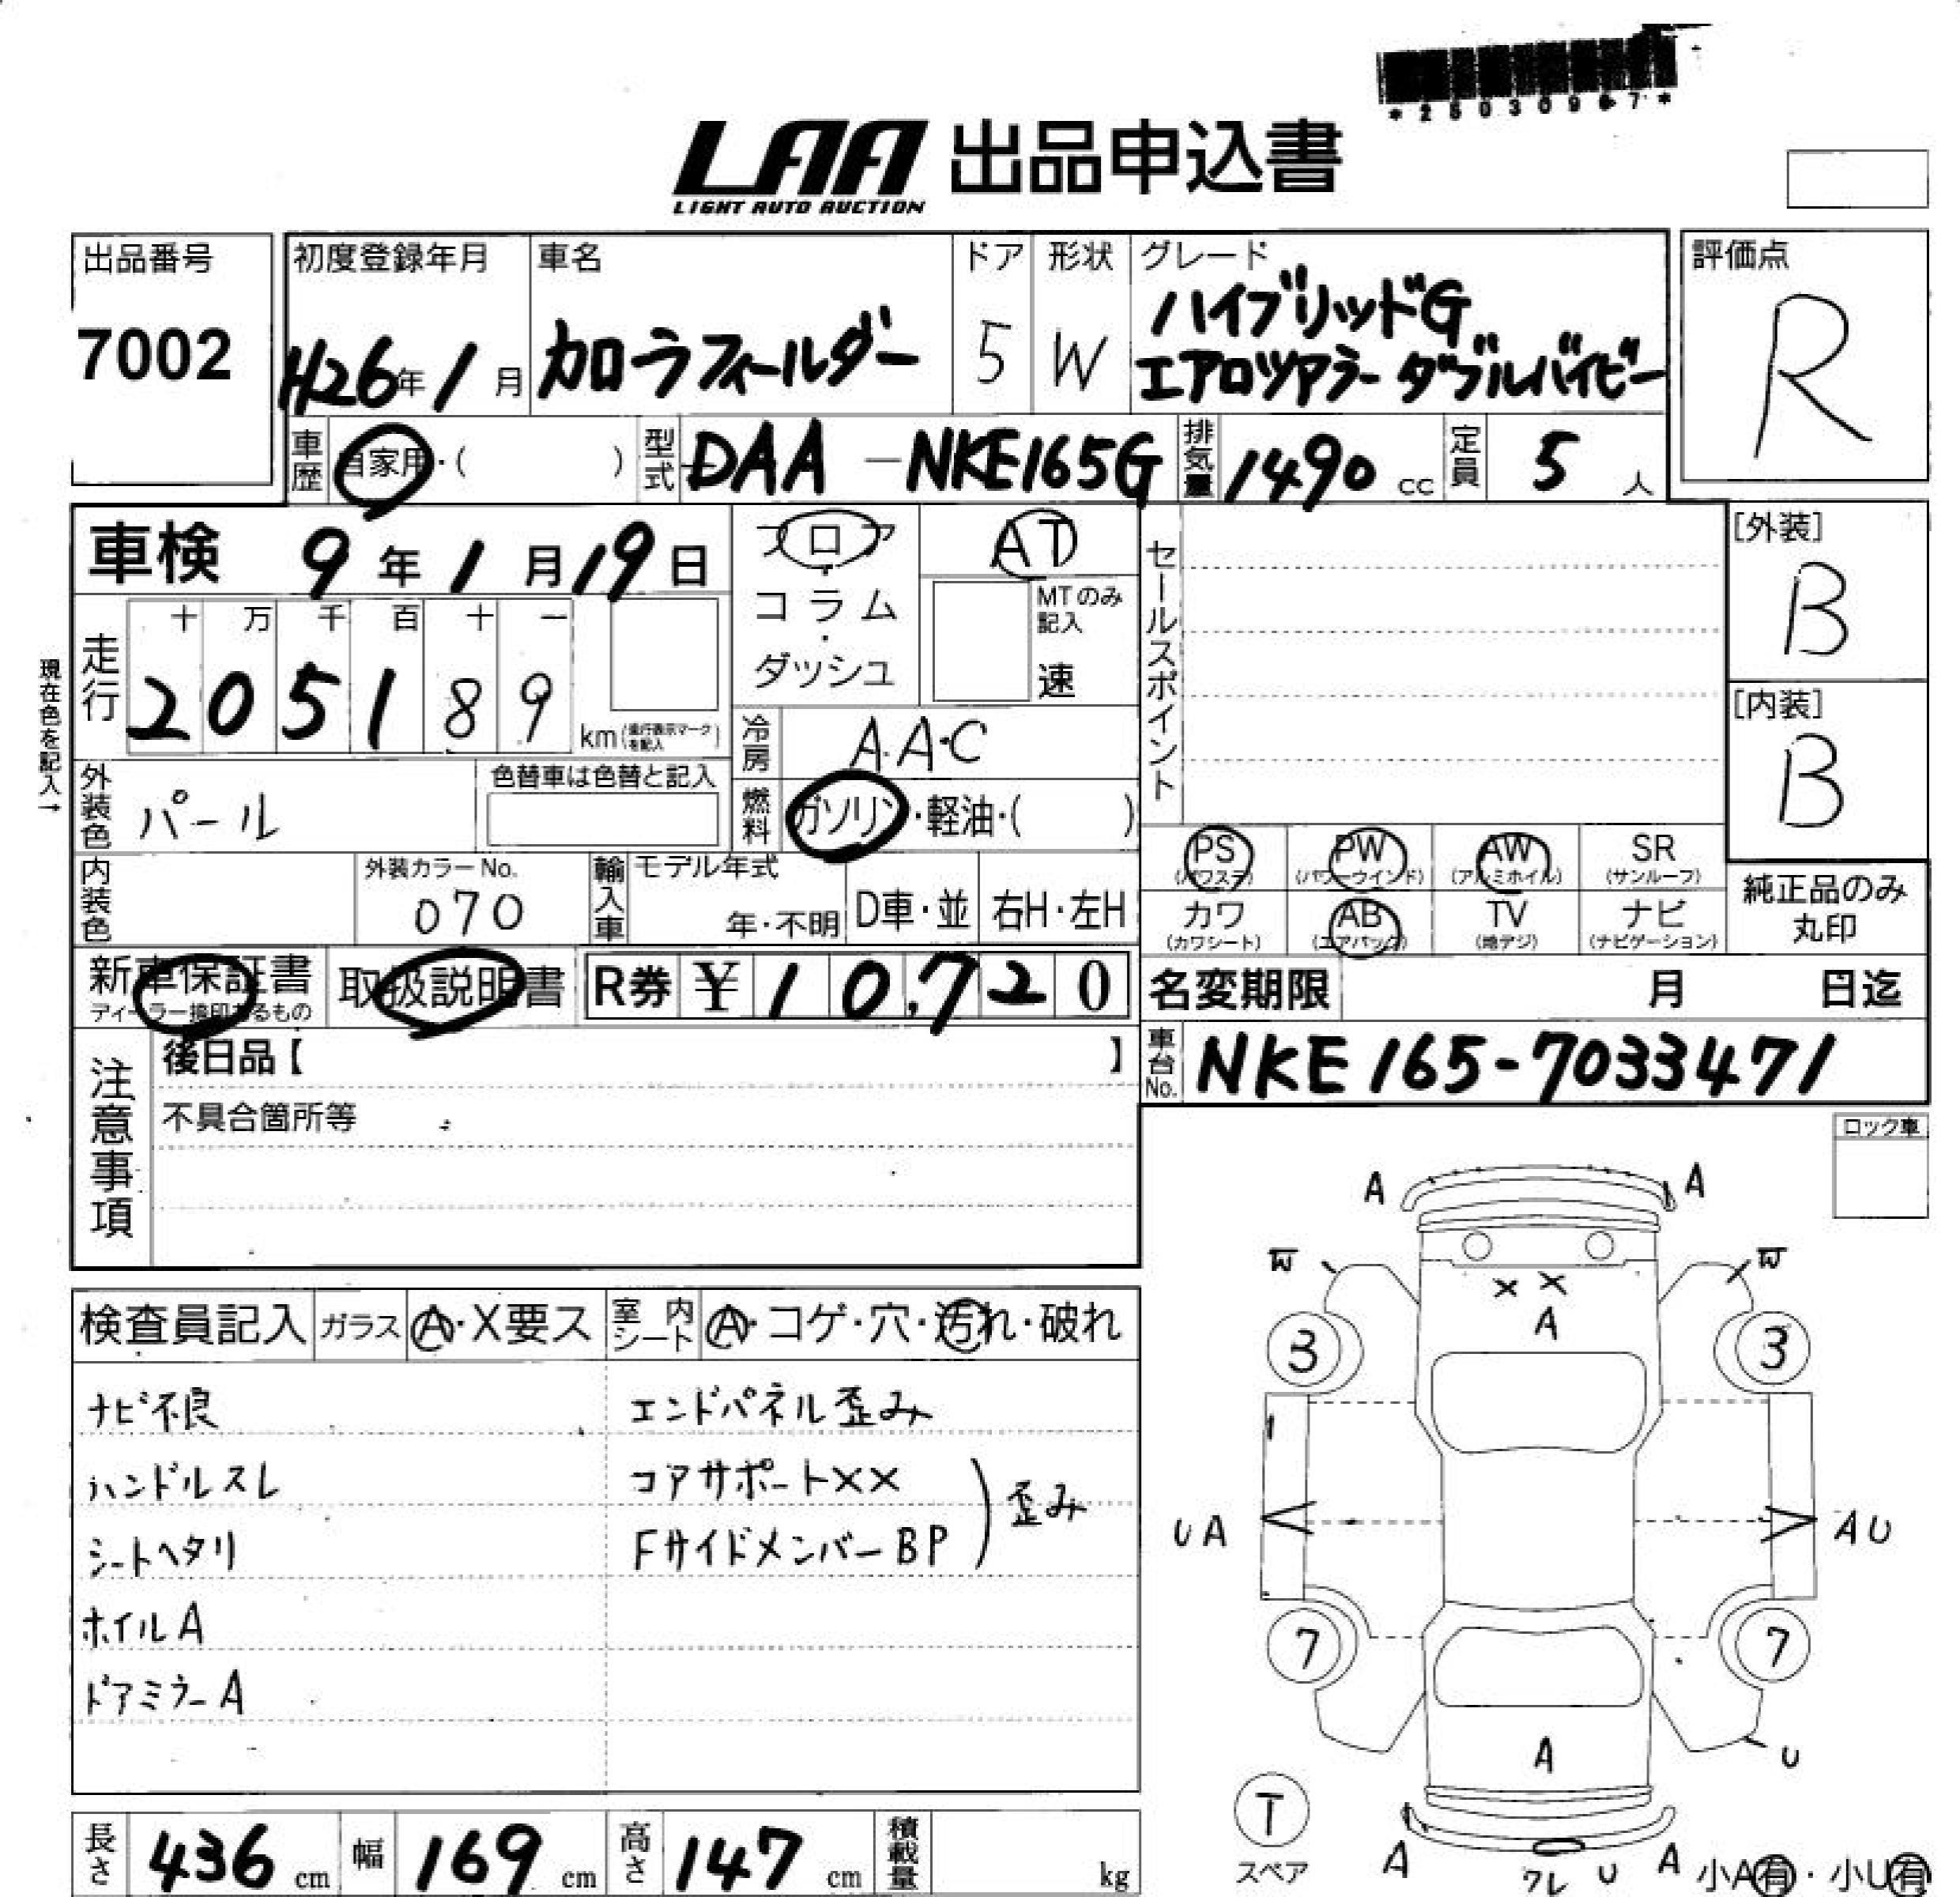 *2503097*
LAA 出品申込書
LIGHT AUTO AUCTION
出品番号
7002
初度登録年月
H26年1月
車名
カローラフィールダー
ドア
5
形状
W
グレード
ハイブリッドG
エアロツアラー ダブルバイビー
評価点
R
車歴
自家用・( )
型式
DAA-NKE165G
排気量
1490 cc
定員
5 人
車検 9年1月19日
フロア・コラム・ダッシュ
AT
MTのみ記入
速
セールスポイント
[外装]
B
[内装]
B
現在色を記入→
走行
十 万 千 百 十 一
2 0 5 1 8 9
km(走行表示マークを記入)
冷房
A.A.C
外装色
パール
色替車は色替と記入
燃料
ガソリン・軽油・( )
内装色
外装カラーNo.
070
輸入車
モデル年式
年・不明
D車・並
右H・左H
PS
(パワステ)
PW
(パワーウインド)
AW
(アルミホイル)
SR
(サンルーフ)
カワ
(カワシート)
AB
(エアバッグ)
TV
(地デジ)
ナビ
(ナビゲーション)
純正品のみ
丸印
新車保証書
ディーラー捺印あるもの
取扱説明書
R券 ¥10,720
名変期限 月 日迄
車台No.
NKE165-7033471
注意事項
後日品【 】
不具合箇所等
ロック車
検査員記入
ガラス
A・X要ス
室内シート
A・コゲ・穴・汚れ・破れ
ナビ不良
ハンドルスレ
シートヘタリ
ホイルA
ドアミラーA
エンドパネル歪み
コアサポートXX
FサイドメンバーBP
歪み
A A
W W
X X
A
3 3
UA AU
7 7
A
U
T
スペア
A ワレ U A
小A有・小U有
長さ 436 cm
幅 169 cm
高さ 147 cm
積載量 kg